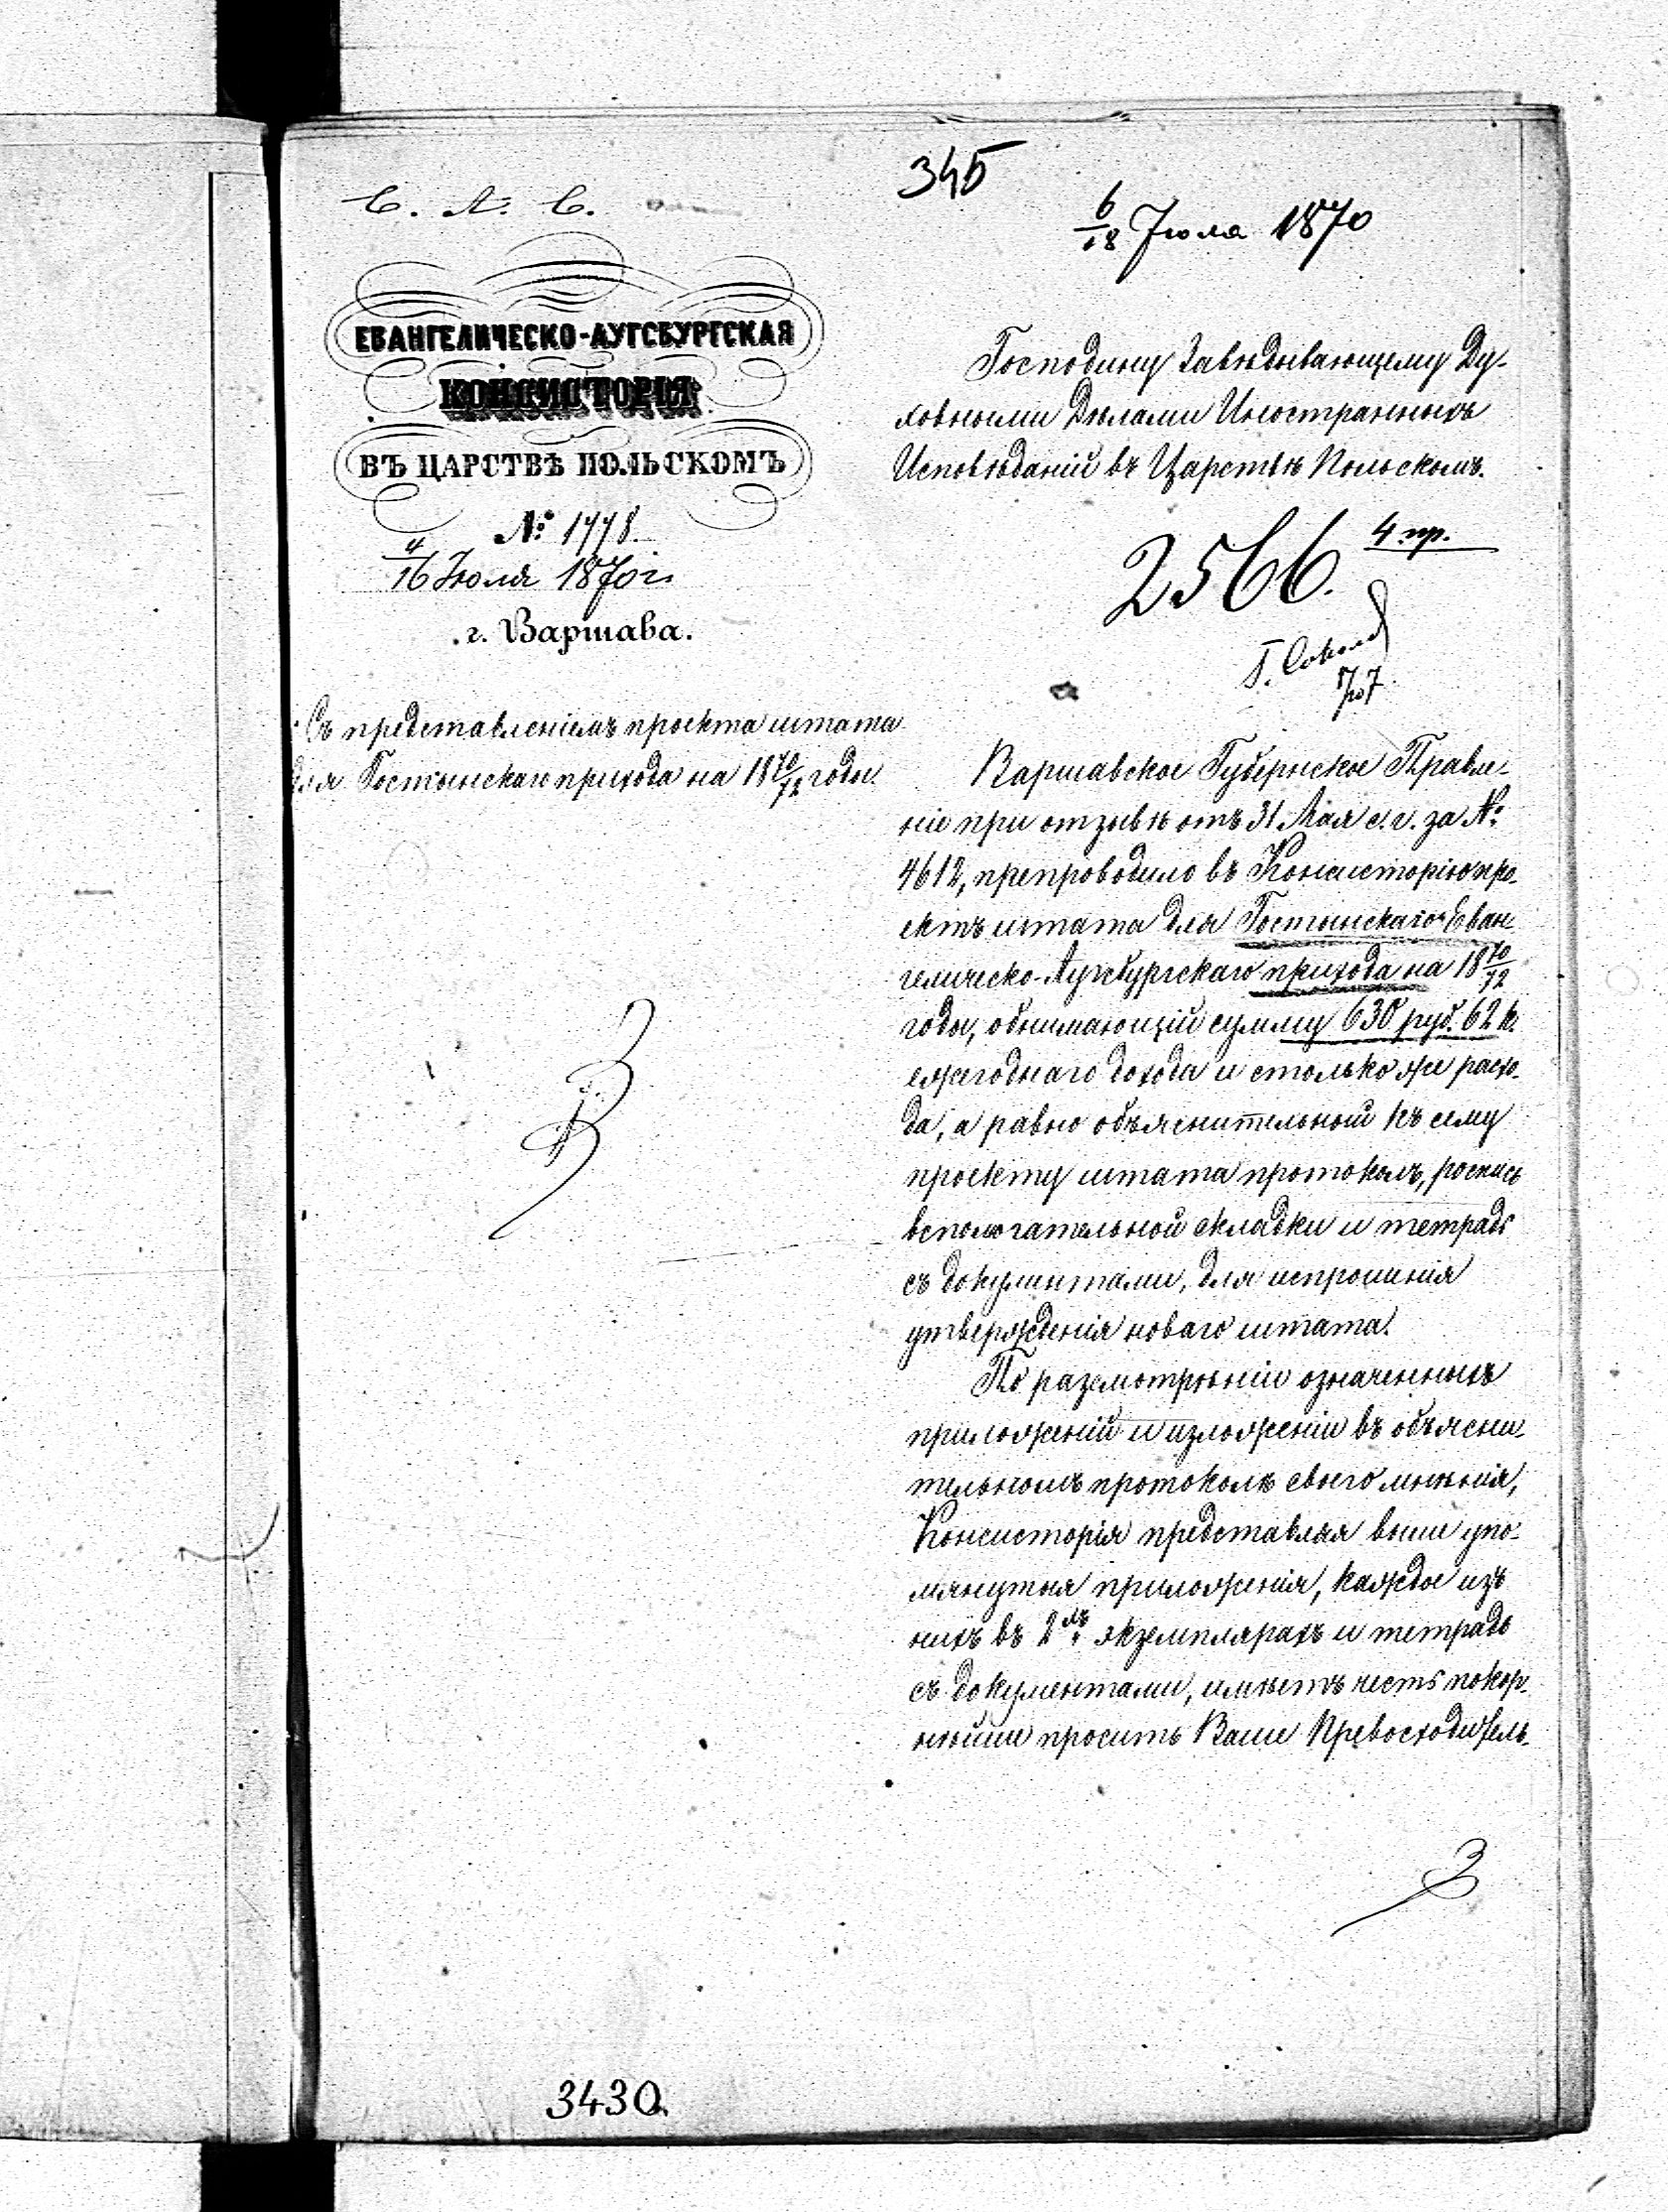 345
С. А. С.
6/18 Іюля 1870
ЕВАНГЕЛИЧЕСКО-АУГСБУРГСКАЯ
КОНСИСТОРІЯ
ВЪ ЦАРСТВѢ ПОЛЬСКОМЪ
№ 1778.
4/16 Іюля 1870 г.
г. Варшава.
Съ представленіемъ проекта штата
для Гостынскаго прихода на 1870/72 годы.
Господину Завѣдывающему Ду-
ховными Дѣлами Иностранныхъ
Исповѣданій въ Царствѣ Польскомъ.
4 пр.
2566.
Варшавское Губернское Правле-
ніе при отзывѣ отъ 31 Мая с. г. за №
4612, препроводило въ Консисторію про-
ектъ штата для Гостынскаго Еван-
гелическо-Аугсбургскаго прихода на 1870/72
годы, обнимающій сумму 630 руб. 62 к.
ежегоднаго дохода и столько же расхо-
да, а равно объяснительной къ сему
проекту штата протоколъ, роспись
вспомогательной складки и тетрадь
съ документами, для испрошенія
утвержденія новаго штата.
По размотрѣніи означенныхъ
приложеній и изложеніи въ объясни-
тельномъ протоколѣ своего мнѣнія,
Консисторія представляя выше упо-
мянутыя приложенія, каждое изъ
нихъ въ 2хъ экземплярахъ и тетрадь
съ документами, имѣетъ честь покор-
нѣйше просить Ваше Превосходитель-
3430.